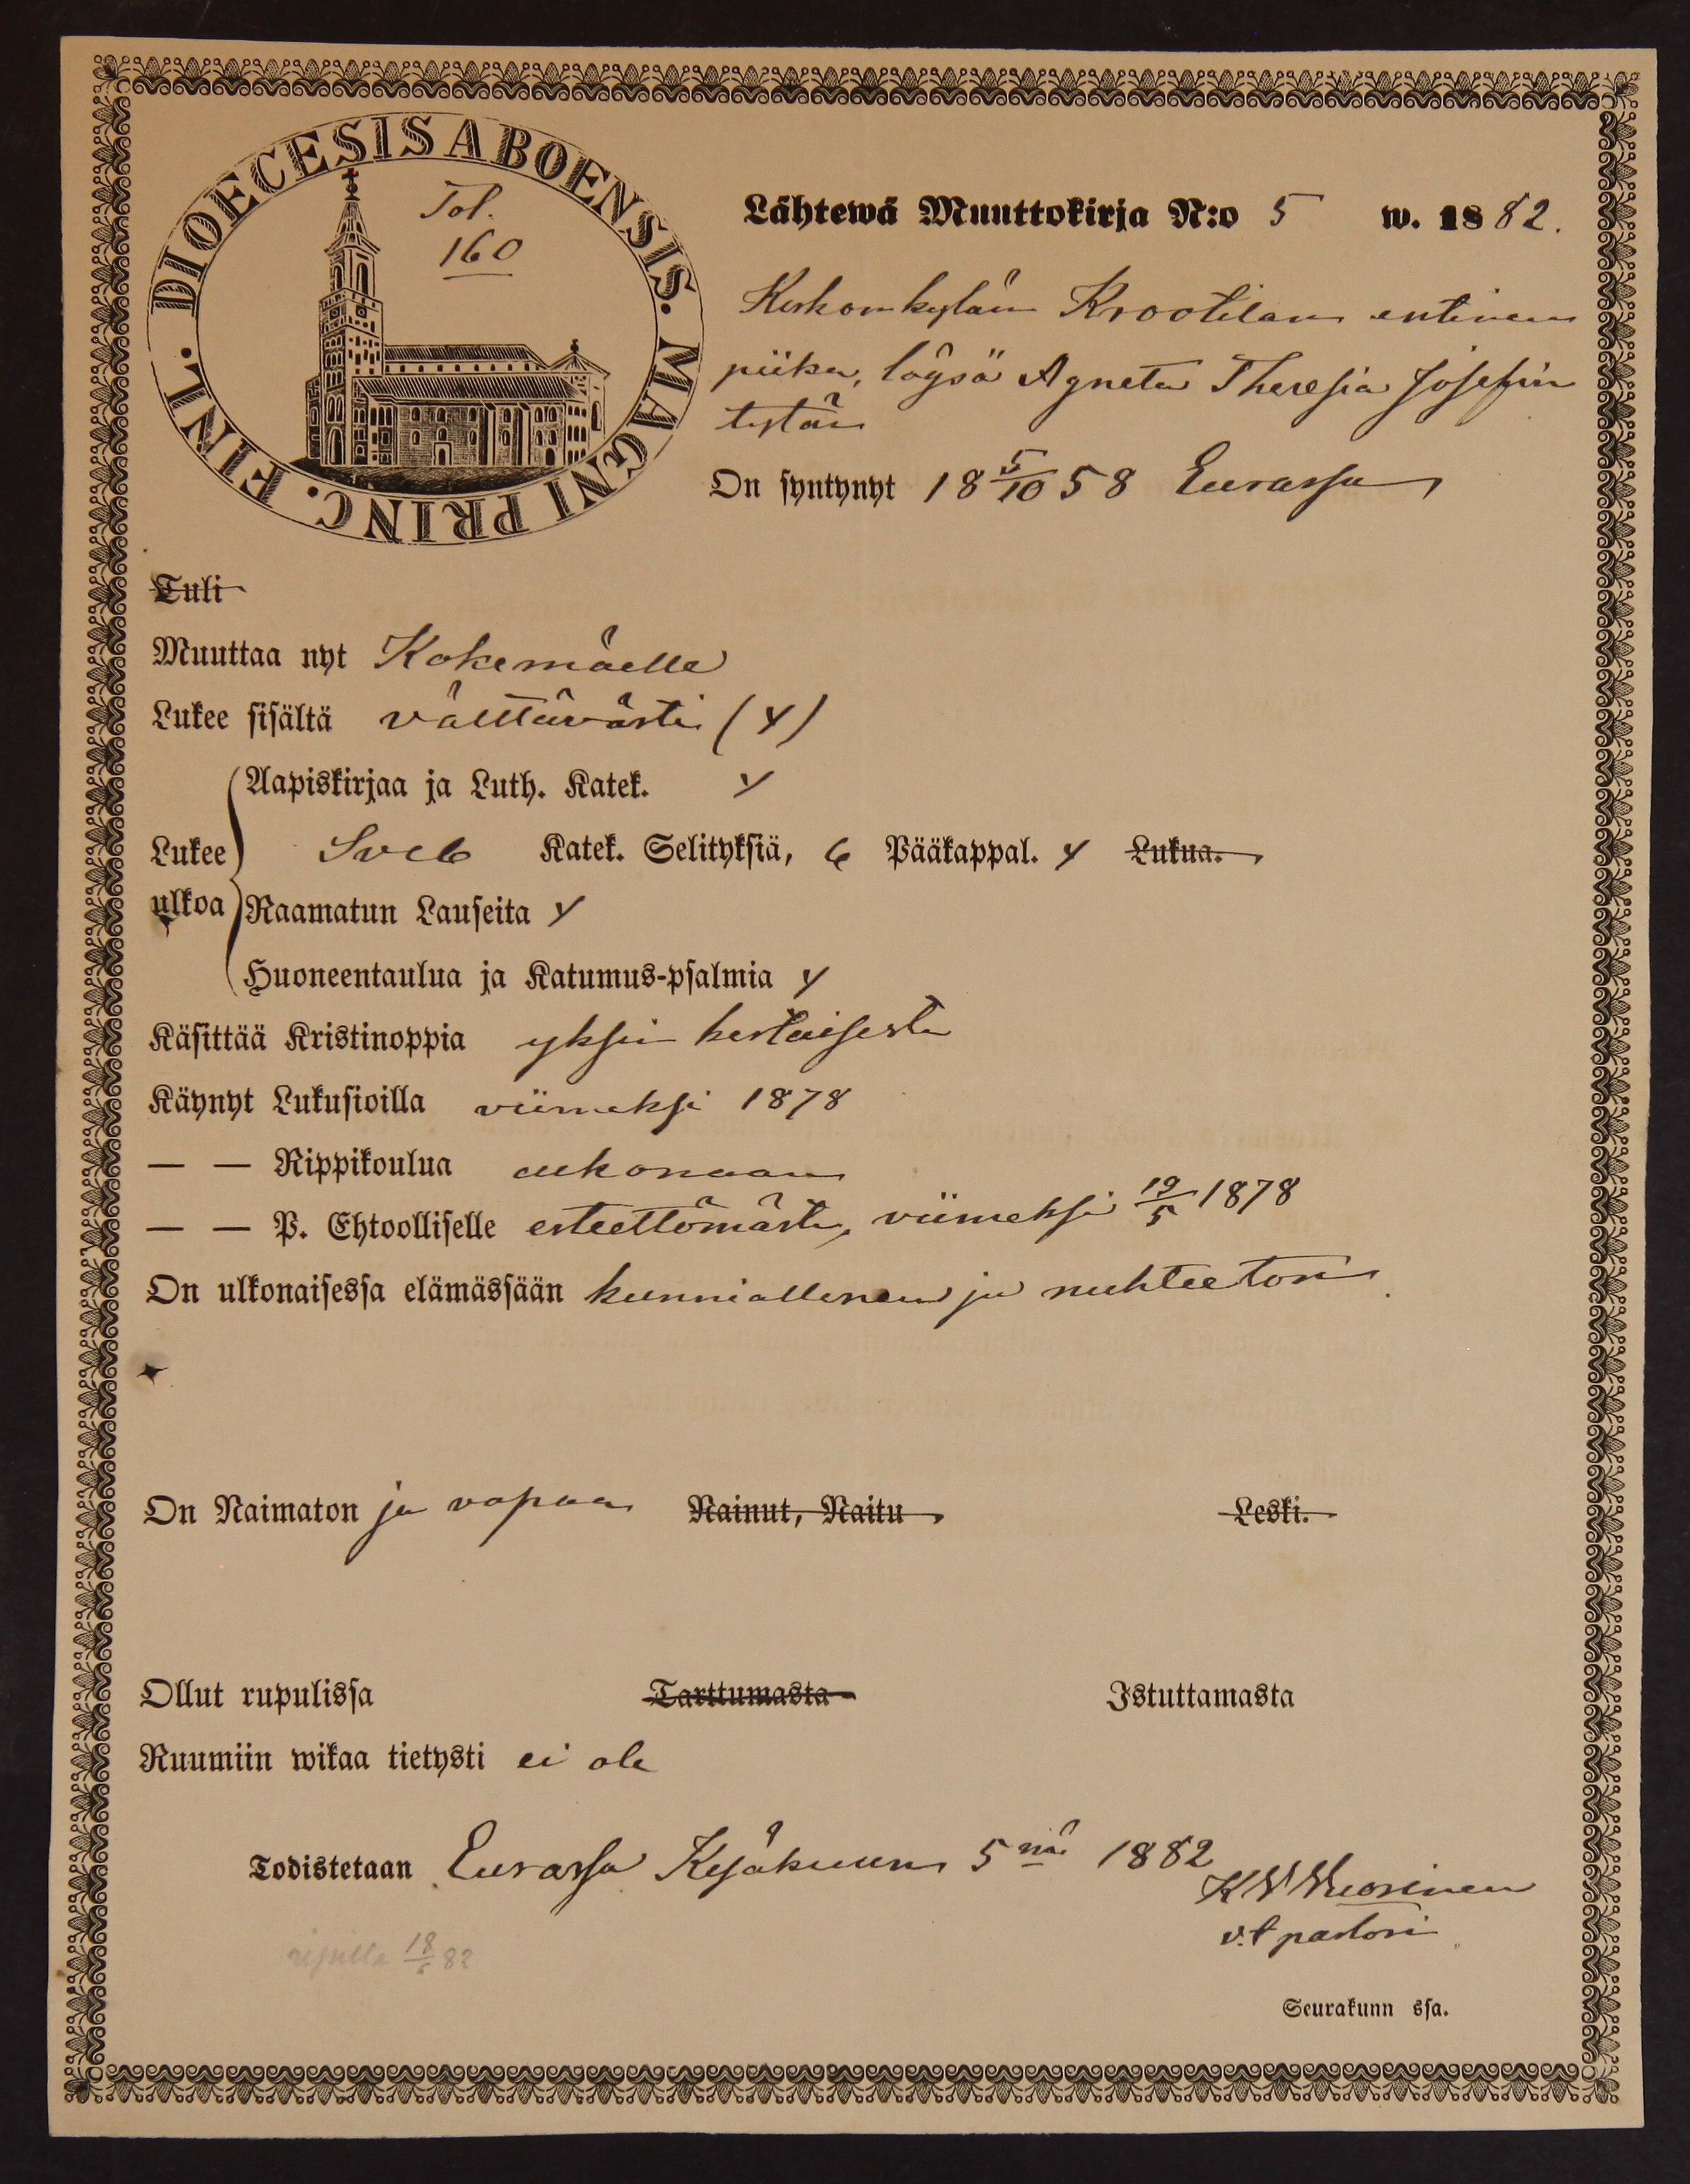 DIOECESIS ABOENSIS. MAGNI PRINC. FINL.
Fol.
160
Lähtewä Muuttokirja N:o 5 w. 1882.
Kirkonkylän Krootilan entinen
piika, löysä Agneta Theresia Josefin
tytär
On syntynyt 18 5/10 58 Eurassa
Tuli
Muuttaa nyt Kokemäelle
Lukee sisältä välttävästi (y)
Aapiskirjaa ja Luth. Katek. y
Lukee Sveb Katek. Selityksiä, 6 Pääkappal. y Lukua.
ulkoa Raamatun Lauseita y
Huoneentaulua ja Katumus-psalmia y
Käsittää Kristinoppia yksin kertaisesti
Käynyt Lukusioilla viimeksi 1878
— — Rippikoulua
— — P. Ehtoolliselle esteettömästi, viimeksi 19/5 1878
On ulkonaisessa elämässään kunniallinen ja nuhteeton
On Naimaton ja vapaa Nainut, Naitu Leski.
Ollut rupulissa Tarttumasta Istuttamasta
Ruumiin wikaa tietysti ei ole
Todistetaan Eurassa Kesäkuun 5 nä 1882
K W Vuorinen
v.t pastori
ripillä 18/6 82
Seurakunn ssa.